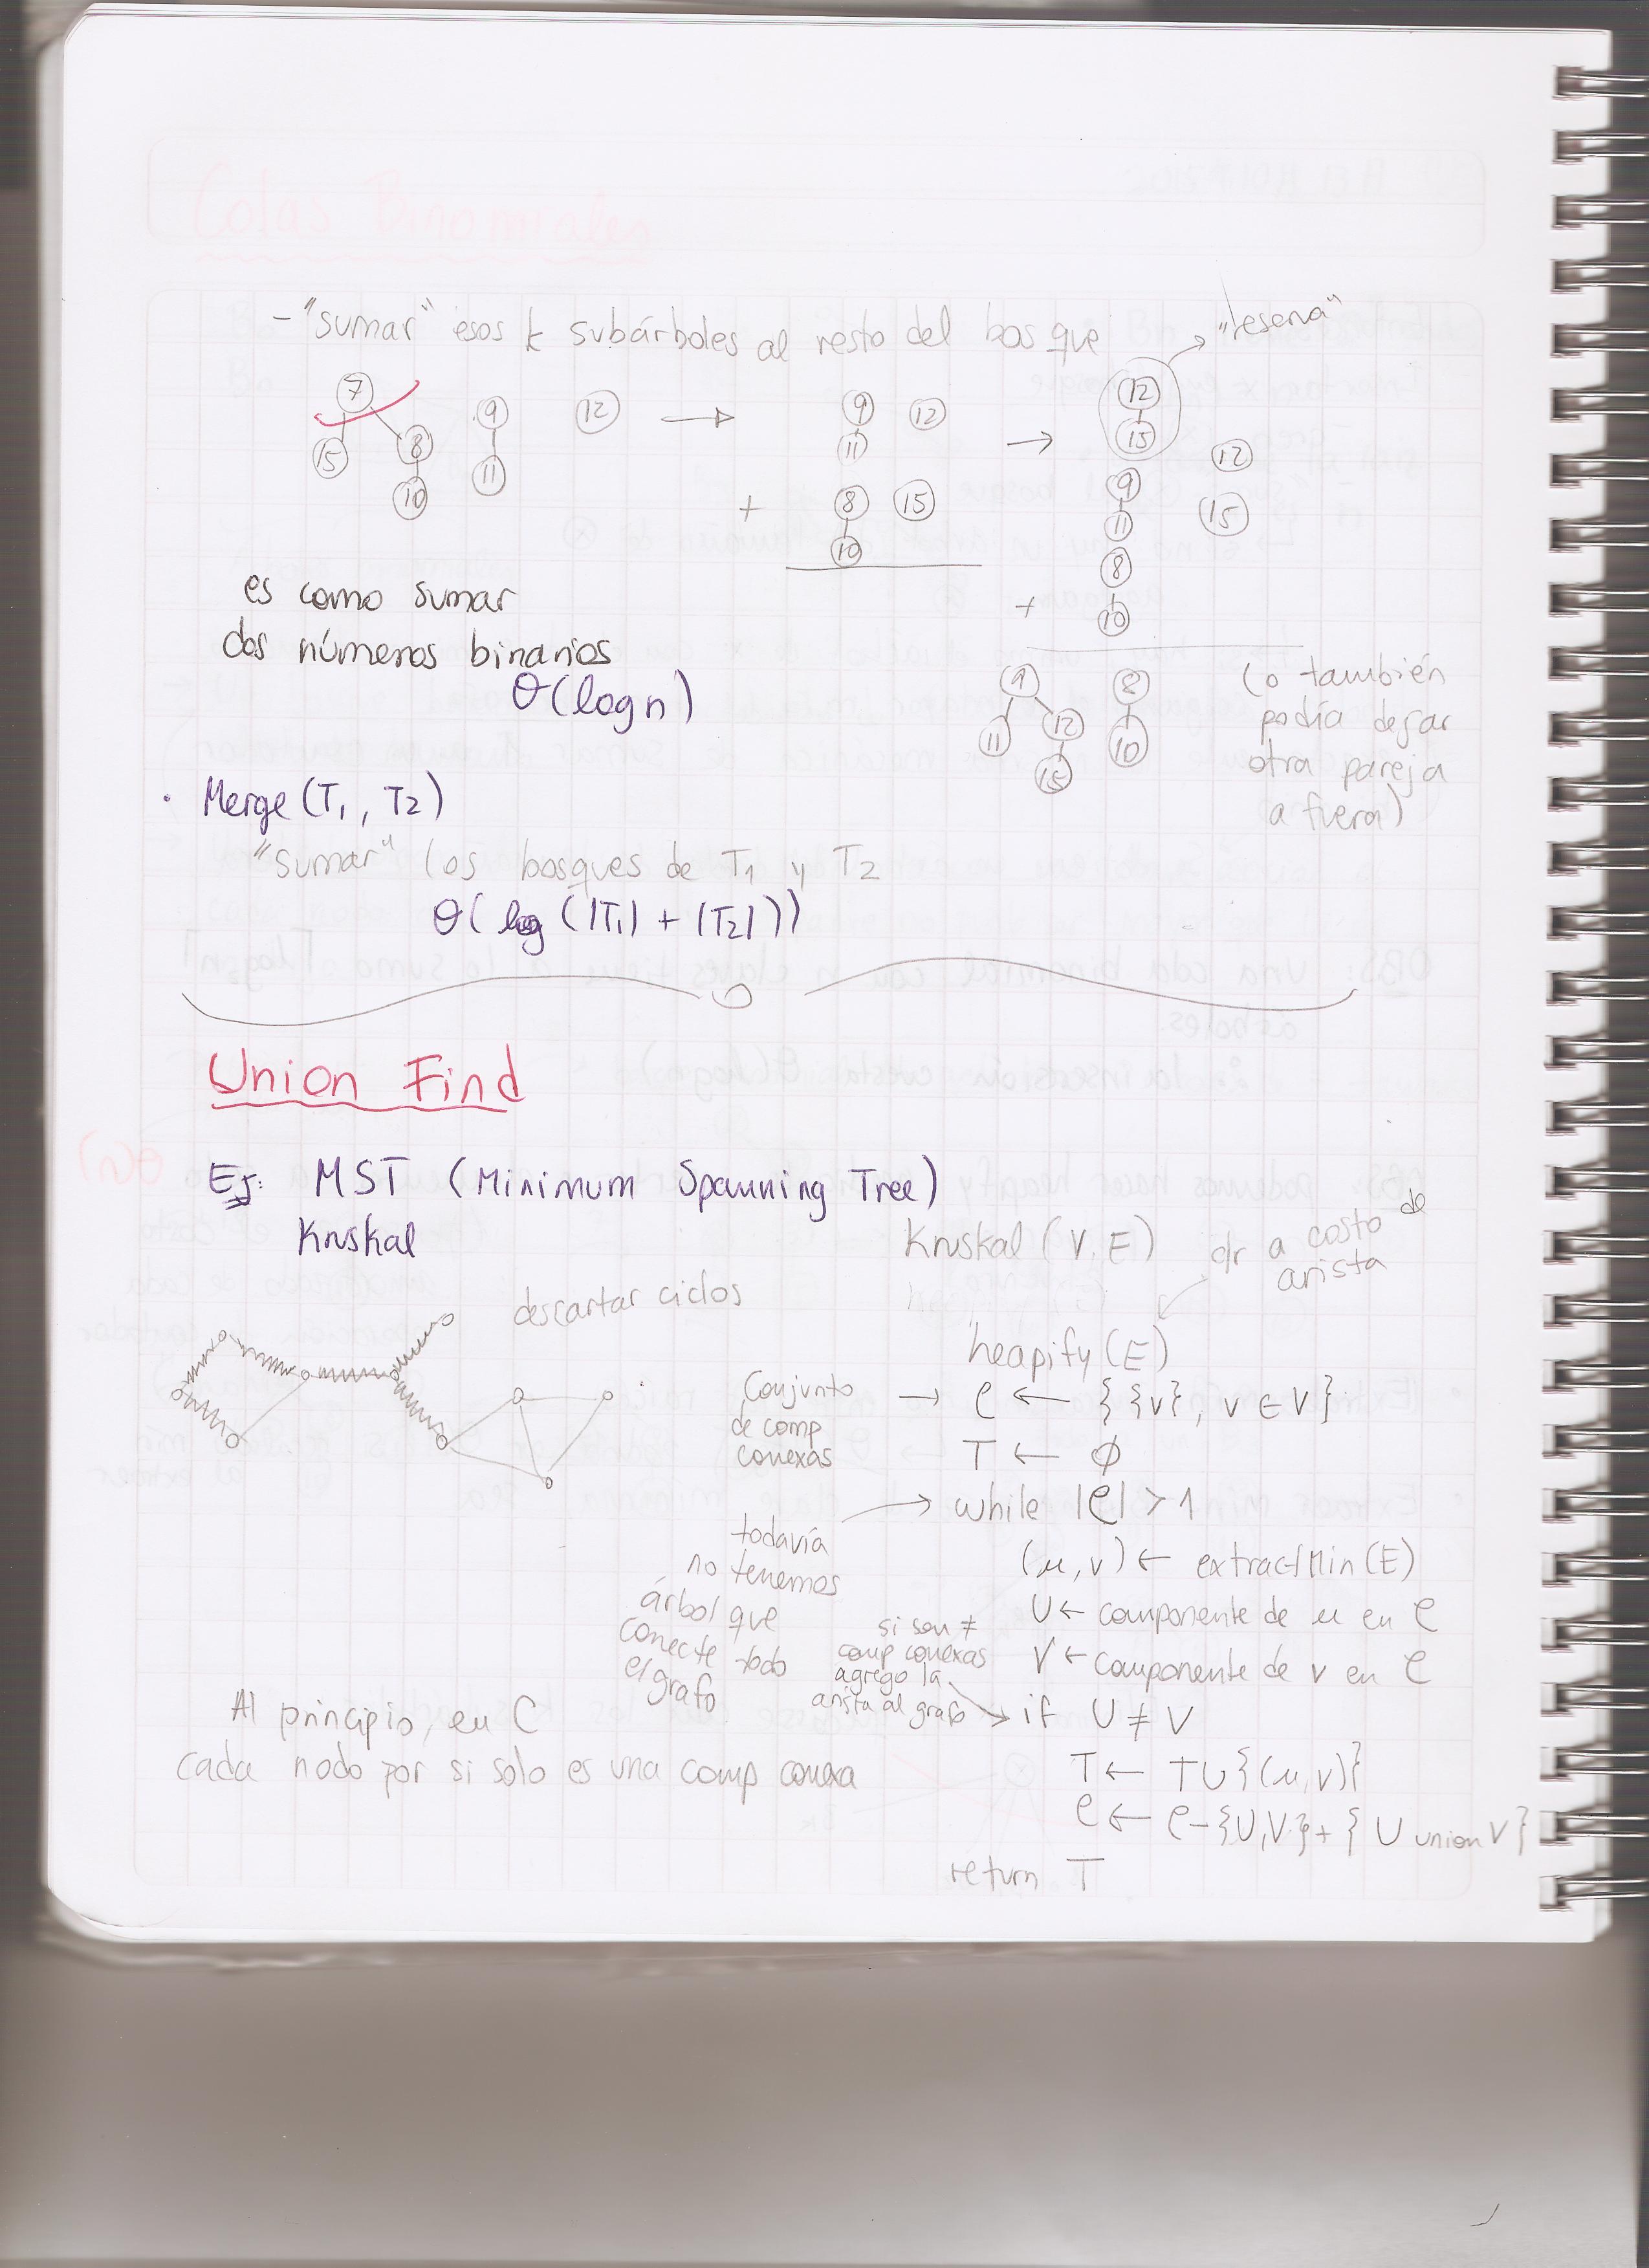 Colas Binomiales
- "sumar" esos k subárboles al resto del bosque
"reserva"
7
15
8
10
9
11
12
9
12
11
+
8
15
10
12
15
12
9
11
15
8
+
10
es como sumar
dos números binarios
θ(log n)
9
8
11
12
10
15
(o también
podía dejar
otra pareja
a fuera)
• Merge (T1, T2)
"sumar" los bosques de T1 y T2
θ( log (|T1| + |T2|))
Union Find
Ej: MST (Minimum Spanning Tree)
Kruskal
descartar ciclos
Kruskal (V, E)
c/r a costo de
arista
heapify (E)
Conjunto
de comp
conexas
→ C ← { {v}, v ∈ V}
T ← ∅
todavía
no tenemos
árbol que
conecte todo
el grafo
→ while |C| > 1
(u, v) ← extractMin (E)
U ← componente de u en C
V ← componente de v en C
si son ≠
comp conexas
agrego la
arista al grafo
→ if U ≠ V
T ← T ∪ {(u, v)}
C ← C - {U, V} + { U union V}
return T
Al principio, en C
cada nodo por si solo es una comp conexa